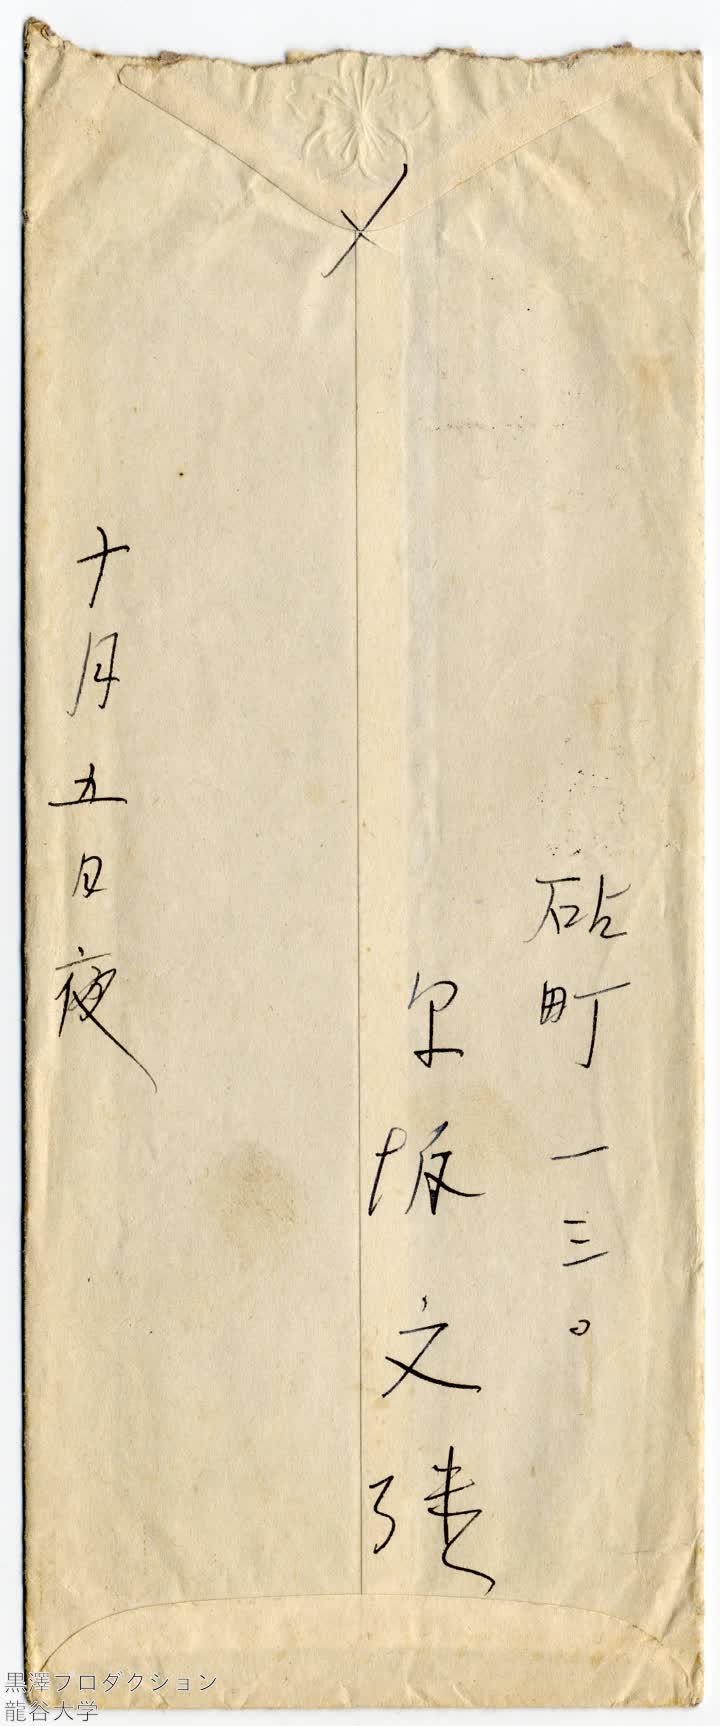 〆
砧町一三〇
早坂文雄
十月五日夜
黒澤プロダクション
龍谷大学